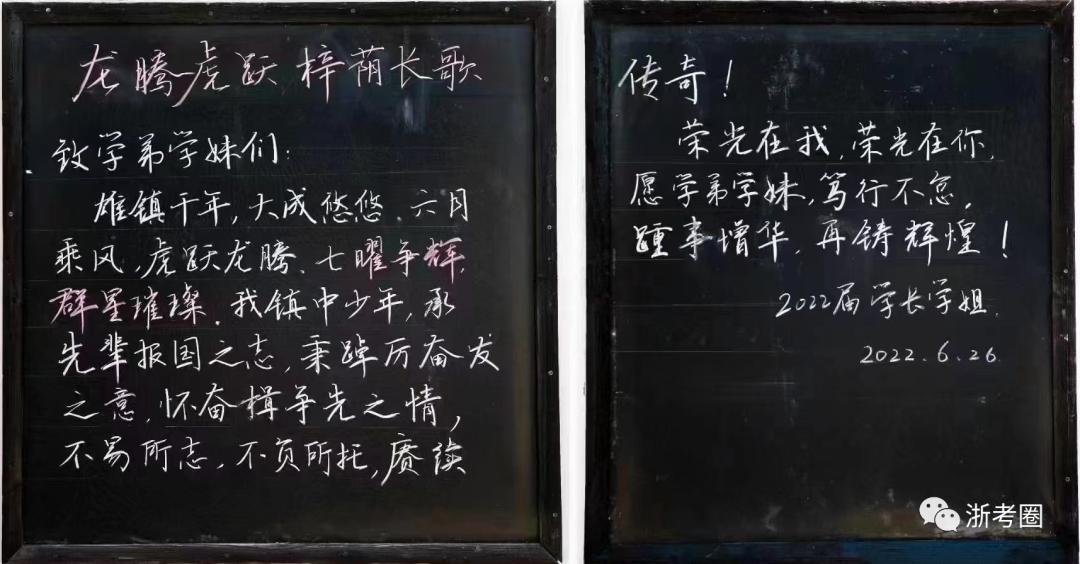 龙腾虎跃 梓荫长歌
致学弟学妹们:
雄镇千年,大成悠悠.六月
乘风,虎跃龙腾.七曜争辉,
群星璀璨.我镇中少年,承
先辈报国之志,秉踔厉奋发
之意,怀奋楫争先之情,
不易所志,不负所托,赓续
传奇!
荣光在我,荣光在你.
愿学弟学妹,笃行不怠,
踵事增华,再铸辉煌!
2022届学长学姐.
2022.6.26.
浙考圈